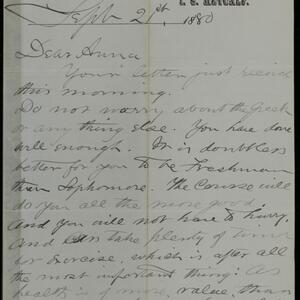 I. S. METCALF.
Sept 21st, 1880
Dear Anna
Your letter just received
this morning.
Do not worry about the Greek
or any thing else. You have done
well enough. It is doubtless
better for you to be Freshman
than Sophomore. The Course will
do you all the more good
and you will not have to hurry.
And can take plenty of time
for exercise, which is after all
the most important thing: as
health is of more value than